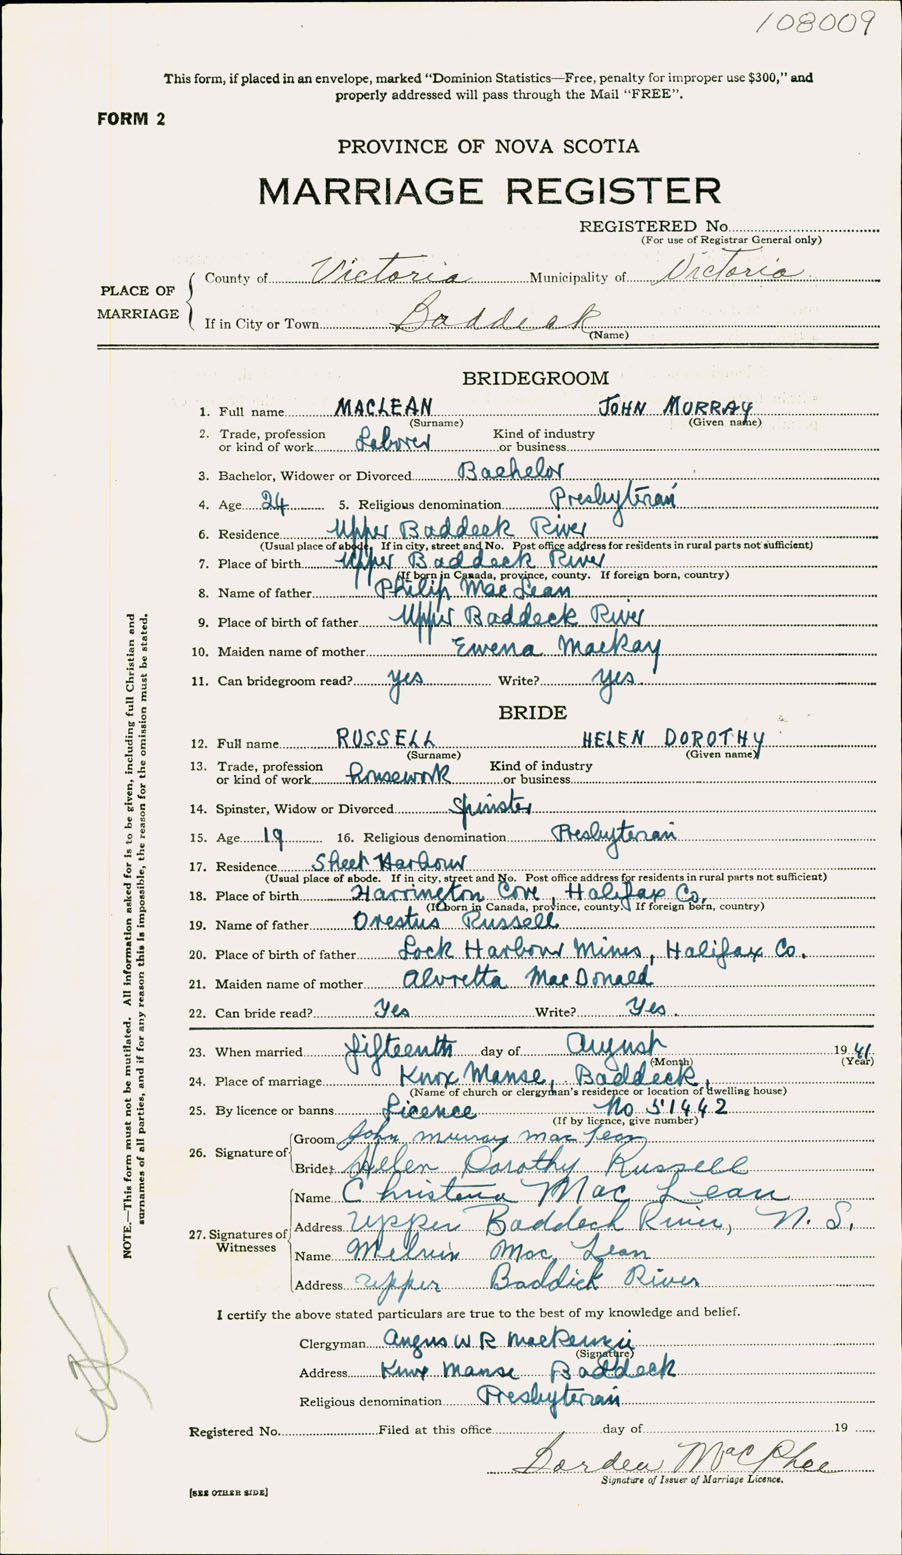 108009
This form, if placed in an envelope, marked "Dominion Statistics—Free, penalty for improper use $300," and
properly addressed will pass through the Mail "FREE".
FORM 2
PROVINCE OF NOVA SCOTIA
MARRIAGE REGISTER
REGISTERED No.
(For use of Registrar General only)
PLACE OF MARRIAGE
County of Victoria Municipality of Victoria
If in City or Town Baddeck
(Name)
BRIDEGROOM
1. Full name MACLEAN JOHN MURRAY
(Surname) (Given name)
2. Trade, profession or kind of work Laborer Kind of industry or business
3. Bachelor, Widower or Divorced Bachelor
4. Age 24 5. Religious denomination Presbyterian
6. Residence Upper Baddeck River
(Usual place of abode. If in city, street and No. Post office address for residents in rural parts not sufficient)
7. Place of birth Upper Baddeck River
(If born in Canada, province, county. If foreign born, country)
8. Name of father Philip MacLean
9. Place of birth of father Upper Baddeck River
10. Maiden name of mother Ewena MacKay
11. Can bridegroom read? yes Write? yes.
BRIDE
12. Full name RUSSELL HELEN DOROTHY
(Surname) (Given name)
13. Trade, profession or kind of work housework Kind of industry or business
14. Spinster, Widow or Divorced Spinster
15. Age 19 16. Religious denomination Presbyterian
17. Residence Sheet Harbour
(Usual place of abode. If in city, street and No. Post office address for residents in rural parts not sufficient)
18. Place of birth Harrington Cove, Halifax Co.
(If born in Canada, province, county. If foreign born, country)
19. Name of father Orestus Russell
20. Place of birth of father Harbour Mines, Halifax Co.
21. Maiden name of mother Alvretta MacDonald
22. Can bride read? Yes Write? Yes.
23. When married fifteenth day of August 19 41.
(Month) (Year)
24. Place of marriage Knox Manse, Baddeck,
(Name of church or clergyman's residence or location of dwelling house)
25. By licence or banns Licence No 51442
(If by licence, give number)
26. Signature of
Groom John Murray MacLean
Bride Helen Dorothy Russell
27. Signatures of Witnesses
Name Christena MacLean
Address Upper Baddeck River, N. S.
Name Melvin MacLean
Address Upper Baddick River
I certify the above stated particulars are true to the best of my knowledge and belief.
Clergyman Angus W R MacKenzie
(Signature)
Address Knox Manse Baddeck
Religious denomination Presbyterian
Registered No. Filed at this office day of 19
MacPhee
Signature of Issuer of Marriage Licence.
[SEE OTHER SIDE]
NOTE.—This form must not be mutilated. All information asked for is to be given, including full Christian and
surnames of all parties, and if for any reason this is impossible, the reason for the omission must be stated.